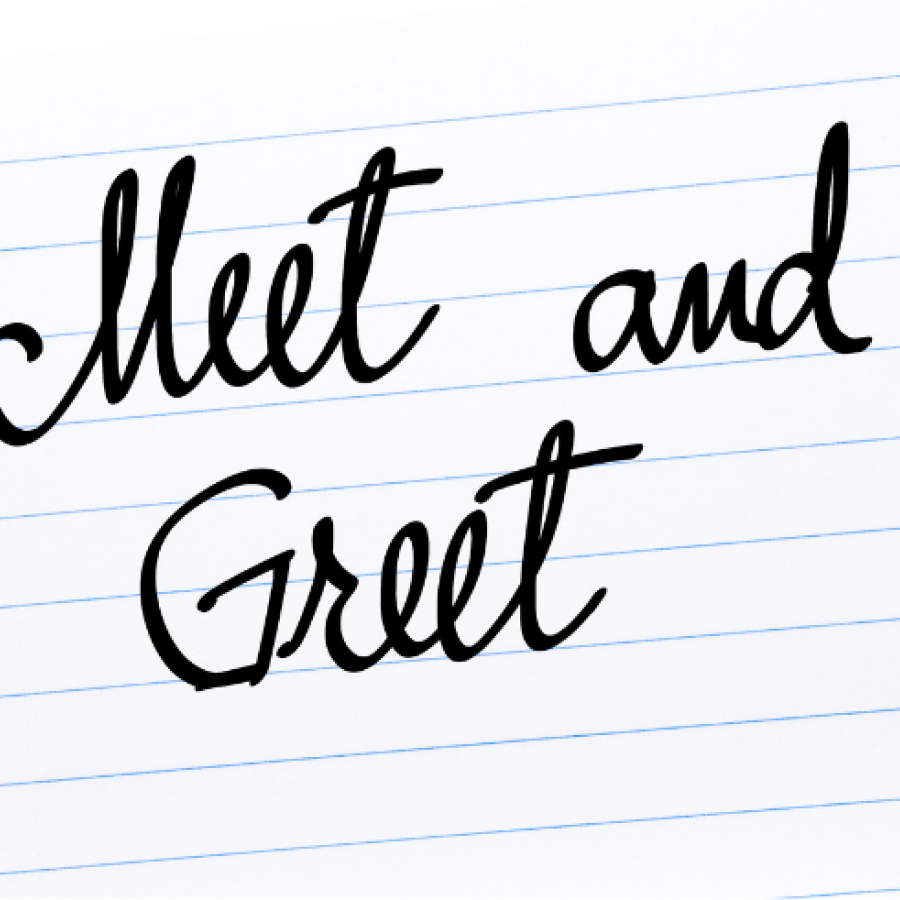 Meet and
Greet